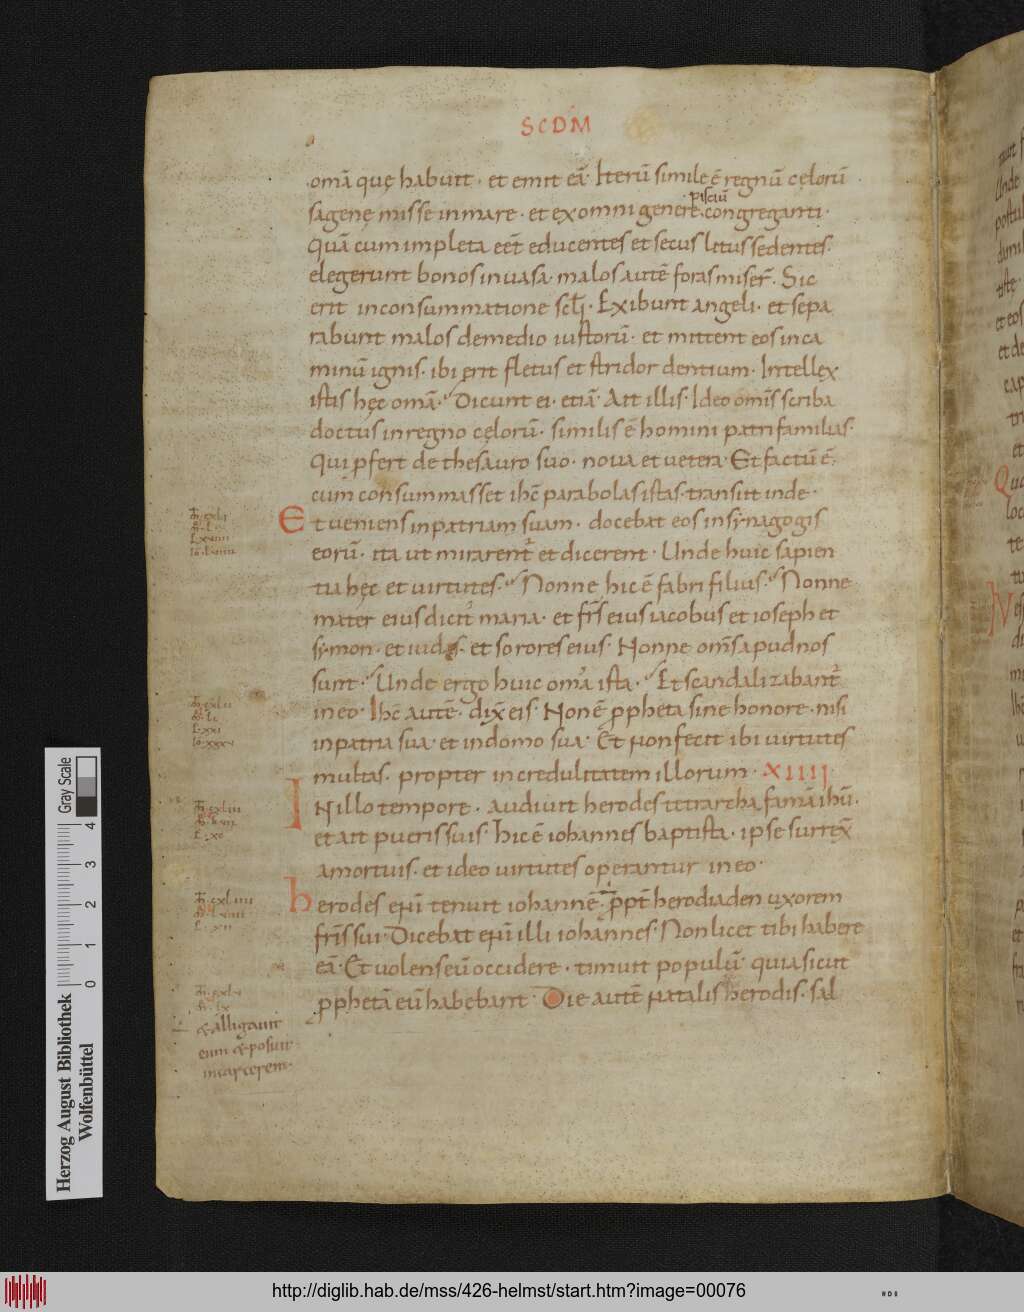 SCDM
omā quę habuit · et emit eā · Iterū simile ē regnū cęlorū
sagenę missę in mare · et ex omni genere · congreganti ·
pisciū
Quā cum impleta eēt educentes et secus litus sedentes ·
elegerunt bonos in uasa · malos autē foras miser̄ · Sic
erit in consummatione sc̄li · Exibunt angeli · et sepa
rabunt malos de medio iustorū · et mittent eos in ca
minū ignis · ibi erit fletus et stridor dentium · Intellex
istis hęc omā · Dicunt ei · etiā · Ait illis · Ideo omīs scriba
doctus in regno cęlorū · similis ē homini patri familias ·
Qui ꝓfert de thesauro suo · noua et uetera · Et factū ē ·
cum consummasset ihc̄ parabolas istas · transiit inde ·
Et ueniens in patriam suam · docebat eos in synagogis
eorū · ita ut mirarent̄ et dicerent · Unde huic sapien
tia hęc et uirtutes · Nonne hic ē fabri filius · Nonne
mater eius dicit̄ maria · et fr̄s eius iacobus et ioseph et
symon · et iudas · et sorores eius · Nonne om̄s apud nos
sunt · Unde ergo huic omā ista · Et scandalizabant̄
in eo · Ihc̄ autē · dix̄ eis · Non ē ꝓpheta sine honore · nisi
in patria sua · et in domo sua · Et non fecit ibi uirtutes
multas · propter incredulitatem illorum · XIIII
IN illo tempore · audiuit herodes tetrarcha famā ihū ·
et ait pueris suis · hic ē iohannes baptista · ipse surrex̄
a mortuis · et ideo uirtutes operantur in eo ·
herodes eni tenuit iohannē · ꝓpt̄ herodiaden uxorem
fr̄is sui · Dicebat eni illi iohannes · Non licet tibi habere
eā · Et uolens eū occidere · timuit populū · quia sicut
ꝓphetā eū habebant · Die autē natalis herodis · sal
& alligauit
eum & posuit
in carcerem ·
Gray Scale
4
3
2
1
0
Herzog August Bibliothek
Wolfenbüttel
http://diglib.hab.de/mss/426-helmst/start.htm?image=00076